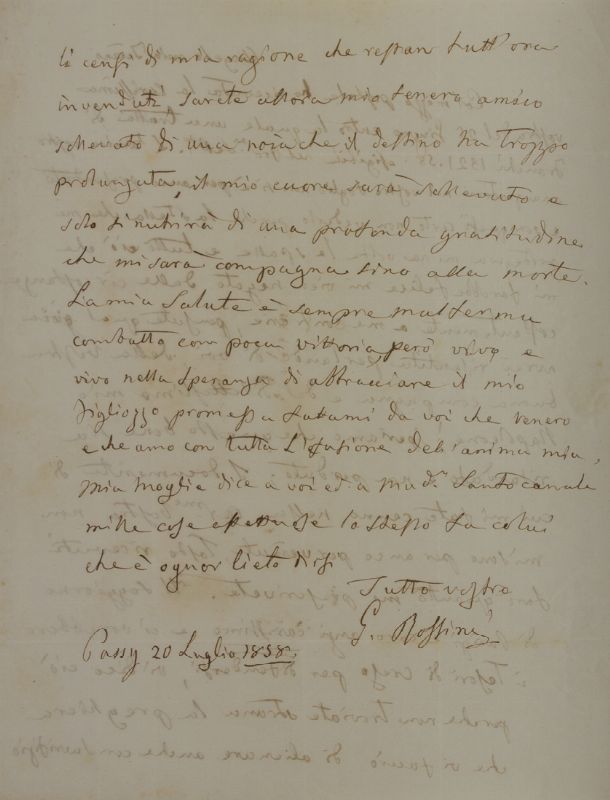 li censi di mia ragione che restan tutt'ora
invenduti, sarete allora mio tenero amico
sollevato di una noia che il destino ha troppo
prolungata, il mio cuore sarà sollevato e
solo si nutrirà di una profonda gratitudine
che mi sarà compagna sino alla morte.
La mia Salute è sempre malferma
combatto con poca vittoria, però vivo e
vivo nella speranza di abbracciare il mio
figliozzo promessa fattami da voi che venero
e che amo con tutta l'effusione dell'anima mia,
Mia Moglie dice a voi ed a Mad.ª Santocanale
mille cose affettuose lo stesso fa colui
che è ognor lieto dirsi
Tutto vostro
G. Rossini
Passy 20 Luglio 1858.